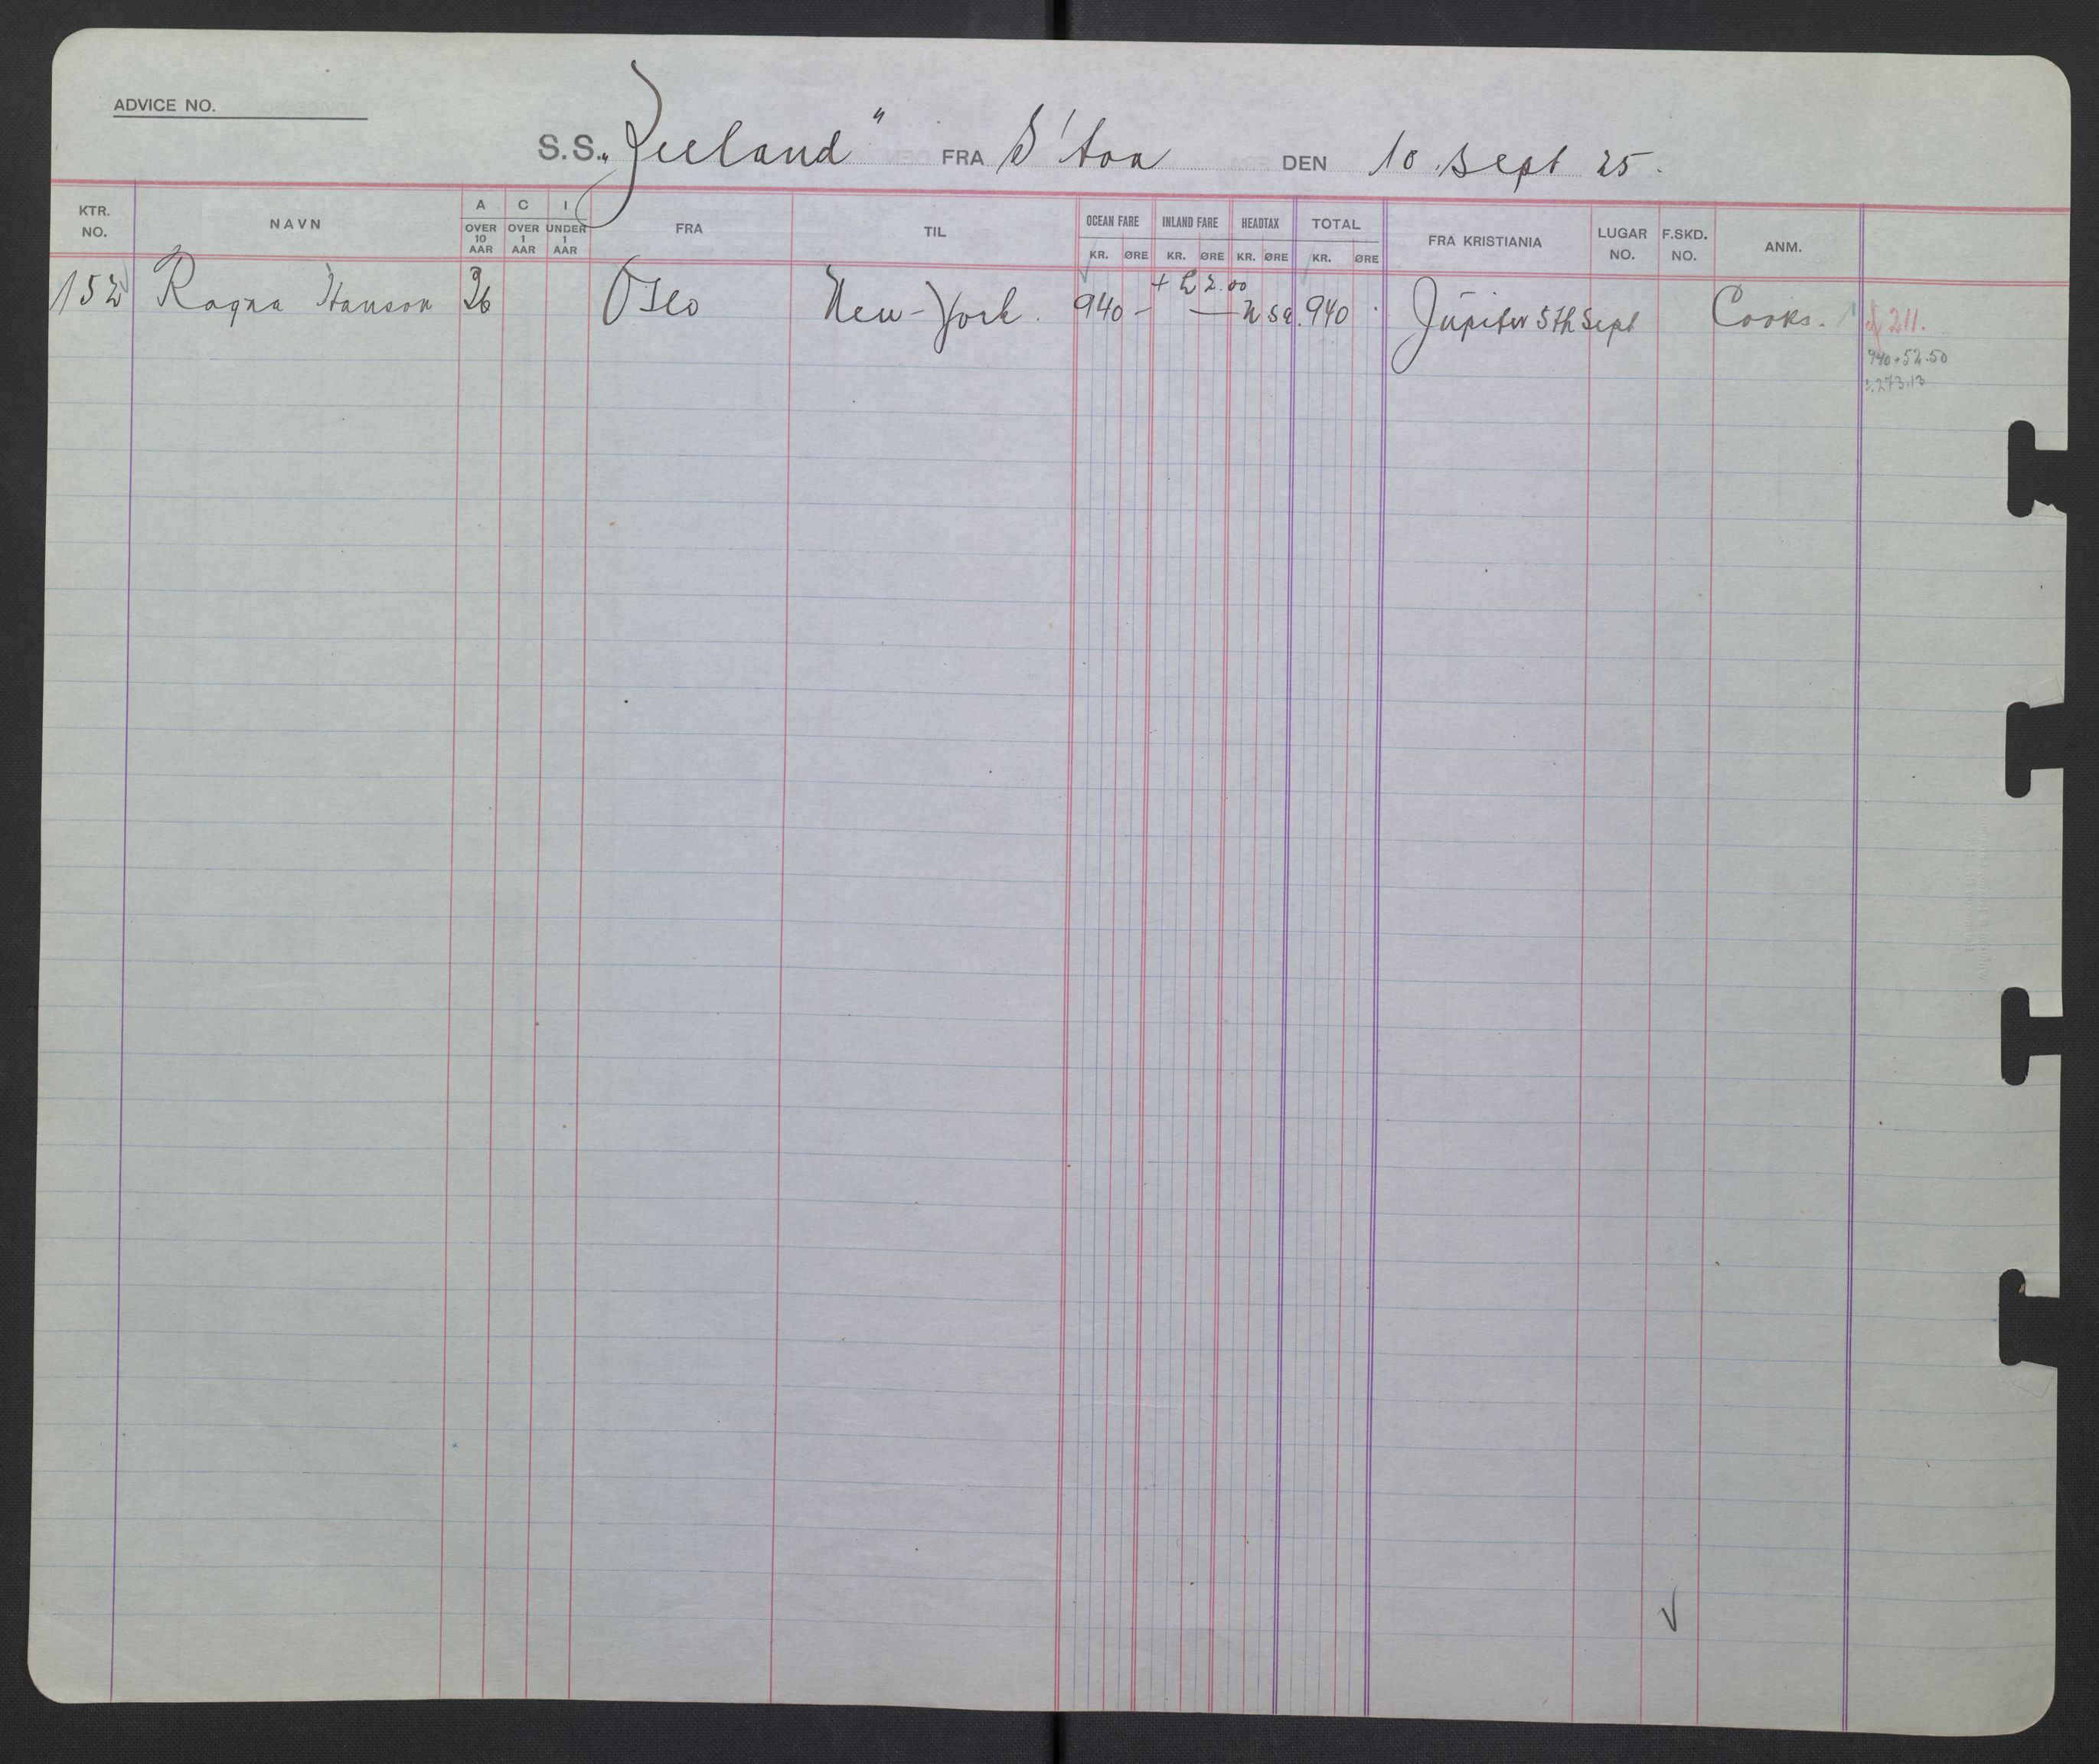 ADVICE NO.
S.S. „Zeeland" FRA S'ton DEN 10 Sept 25.
KTR. NO. NAVN A OVER 10 AAR C OVER 1 AAR I UNDER 1 AAR FRA TIL OCEAN FARE KR. ØRE INLAND FARE KR. ØRE HEADTAX KR. ØRE TOTAL KR. ØRE FRA KRISTIANIA LUGAR NO. F.SKD. NO. ANM.
+ £ 2.00
152 Ragna Hanson 36 Oslo New-York. 940 - — U.S.a. 940 Jupiter 5th Sept Cooks. 211.
940+52.50
273.13